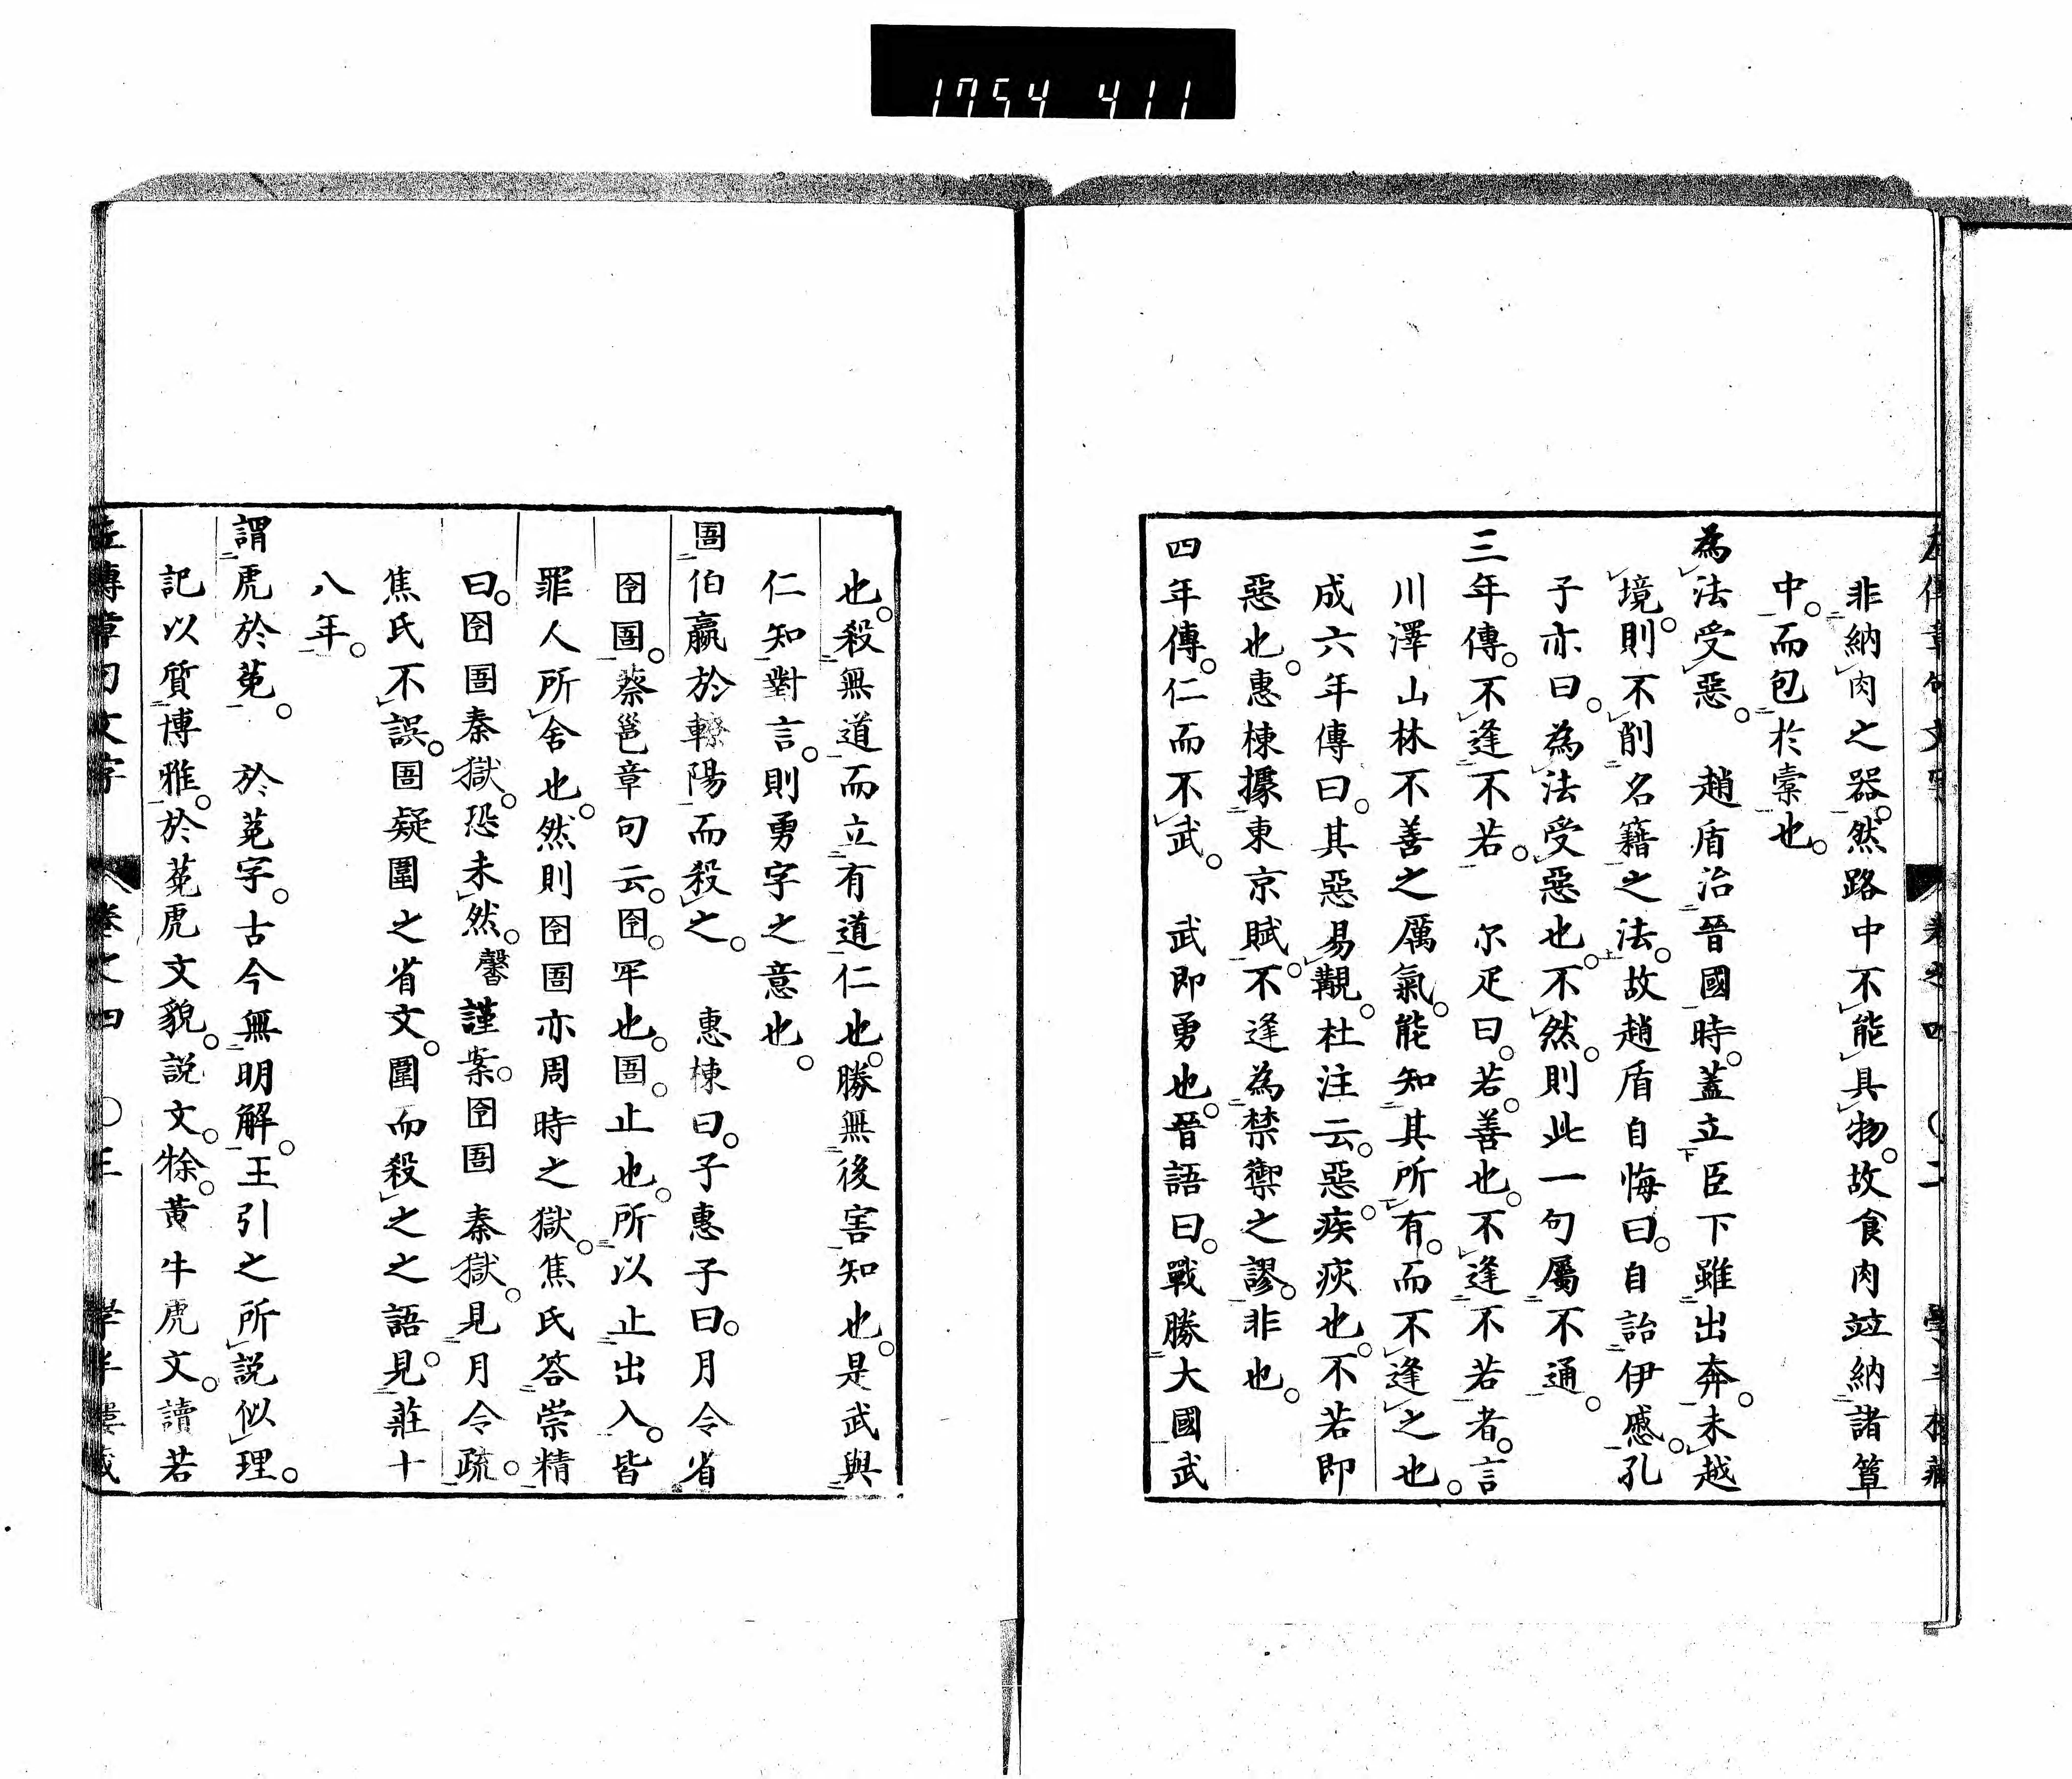 1754 411
左傳章句文字 卷之四 〇二 學半樓藏
非納肉之器。然路中不能具物。故食肉竝納諸簞
中。而包於橐也。
為法受惡。 趙盾治晉國時。蓋立臣下雖出奔。未越
境。則不削名籍之法。故趙盾自悔曰。自詒伊慼。孔
子亦曰。為法受惡也。不然。則此一句屬不通。
三年傳。不逢不若。 尓疋曰。若。善也。不逢不若者。言
川澤山林不善之厲氣。能知其所有。而不逢之也。
成六年傳曰。其惡易覯。杜注云。惡。疾疢也。不若即
惡也。惠棟據東京賦。不逢為禁禦之謬。非也。
四年傳。仁而不武。 武即勇也。晉語曰。戰勝大國武
也。殺無道而立有道仁也。勝無後害知也。是武與
仁知對言。則勇字之意也。
圄伯嬴於轑陽而殺之。 惠棟曰。子惠子曰。月令省
囹圄。蔡邕章句云。囹。牢也。圄。止也。所以止出入。皆
罪人所舍也。然則囹圄亦周時之獄。焦氏答崇精
曰。囹圄秦獄。恐未然。馨謹案。囹圄秦獄。見月令疏。
焦氏不誤。圄疑圍之省文。圍而殺之之語。見莊十
八年。
謂虎於菟。 於菟字。古今無明解。王引之所説似理。
記以質博雅。於菟虎文貌。説文。㹱。黃牛虎文。讀若
左傳章句文字 卷之四 〇三 學半樓藏